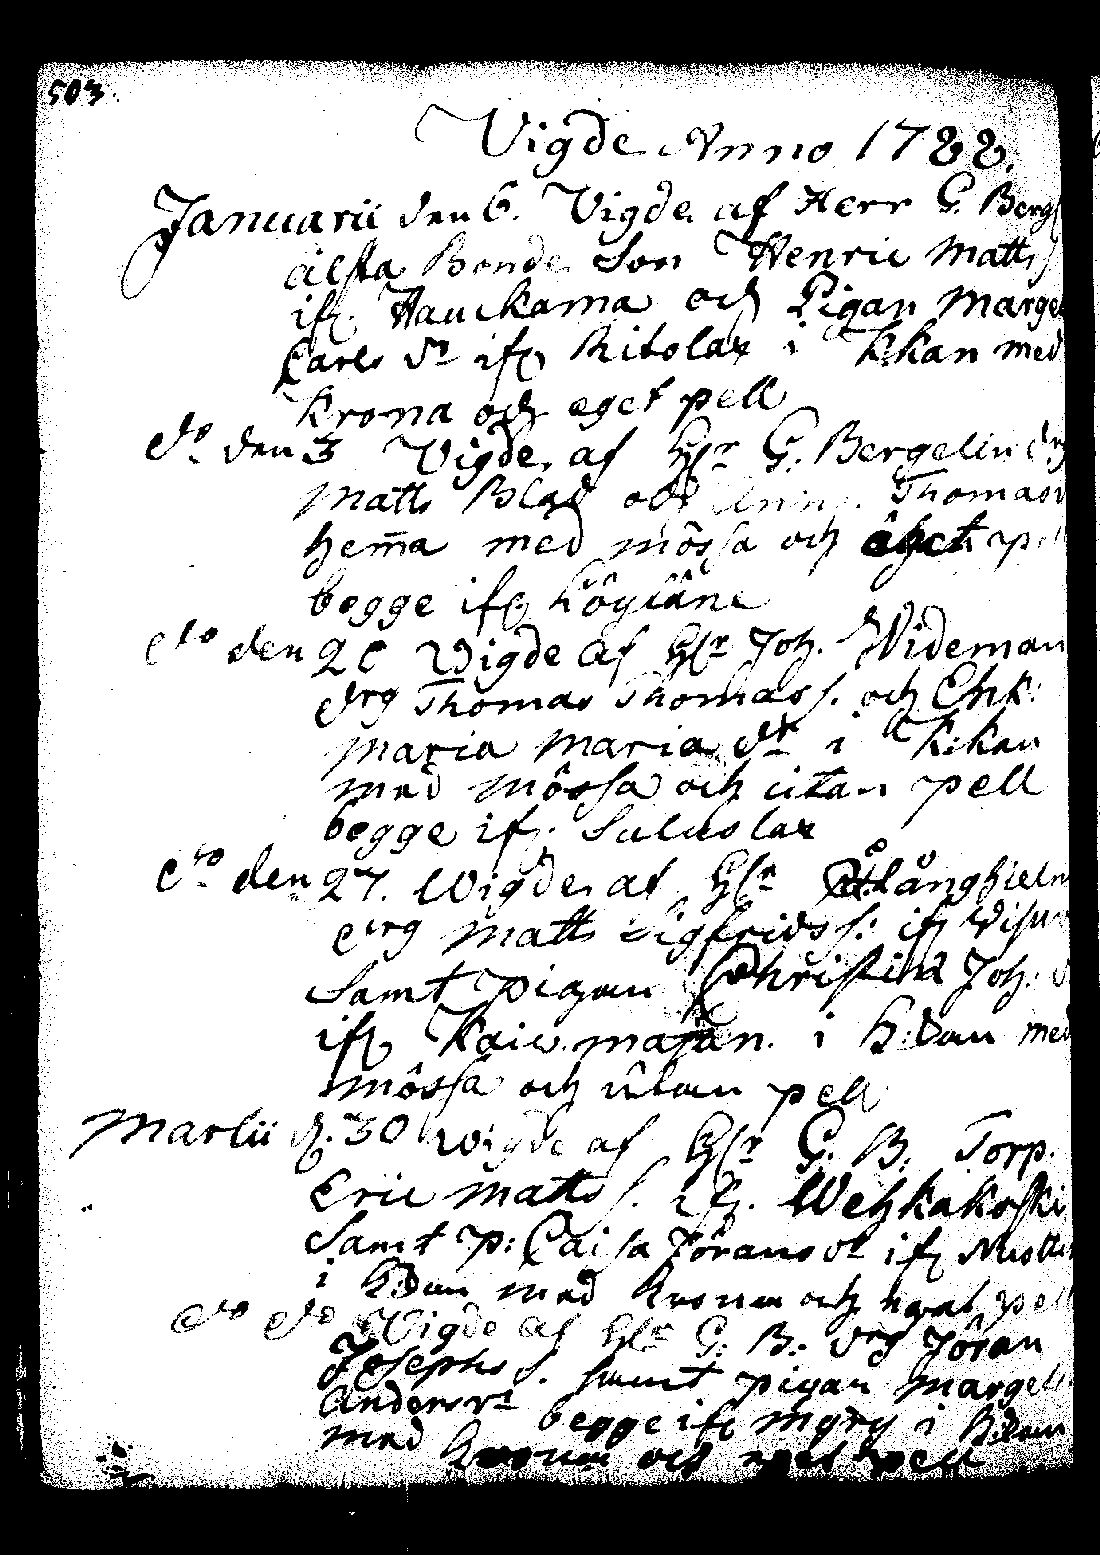 503.
Vigde Anno 1788.
Januarii den 6. Vigde af Herr G. Berg
älsta Bonde Son Henric Matts
ifr. Hauckama och Pigan Marge
Carls dr ifr Ritolax i Kkan med
Krona och eget pell
do den 3 Vigde af Hr G. Bergelin drg
Matts Blad och Thomas
hem̄a med mössa och eget pell
begge ifr
do den 20 Vigde af Hr Joh. Wideman
drg Thomas Thomas s. och Enk:
Maria Maria dr i K:kan
med mössa och utan pell
begge ifr. Suluslax
do den 27. Wigde af Hr Långhielm
drg Matts Sigfrids s: ifr
Samt Pigan Christina Joh:
ifr i H:dan med
mössa och utan pell
Martii d. 30 Wigde af Hr G. B. Torp.
Eric Matts s. ifr. Wehkakoski
Samt P: Caisa Jörans dr ifr
i H:dan med Krona och eget pell
do do Vigde af Hr G: B: drg Jöran
Josephs s. samt pigan Margeta
Anders dr begge ifr Myry i H:dan
med Krona och eget pell